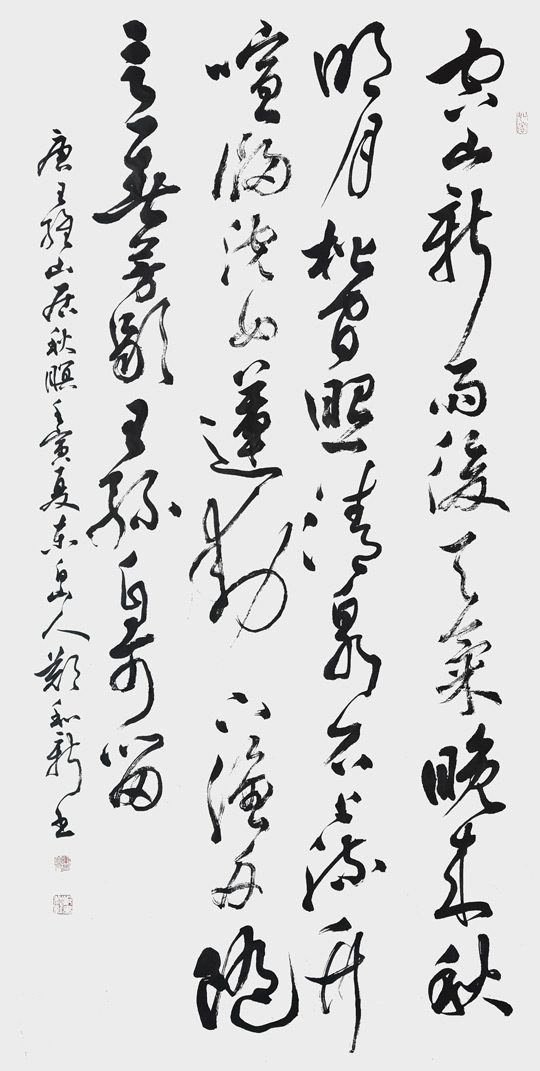 空山新雨後天氣晚來秋
明月松間照清泉石上流竹
喧歸浣女蓮動下漁舟隨
意春芳歇王孫自可留
唐王維山居秋暝壬寅夏東人鄭和新書